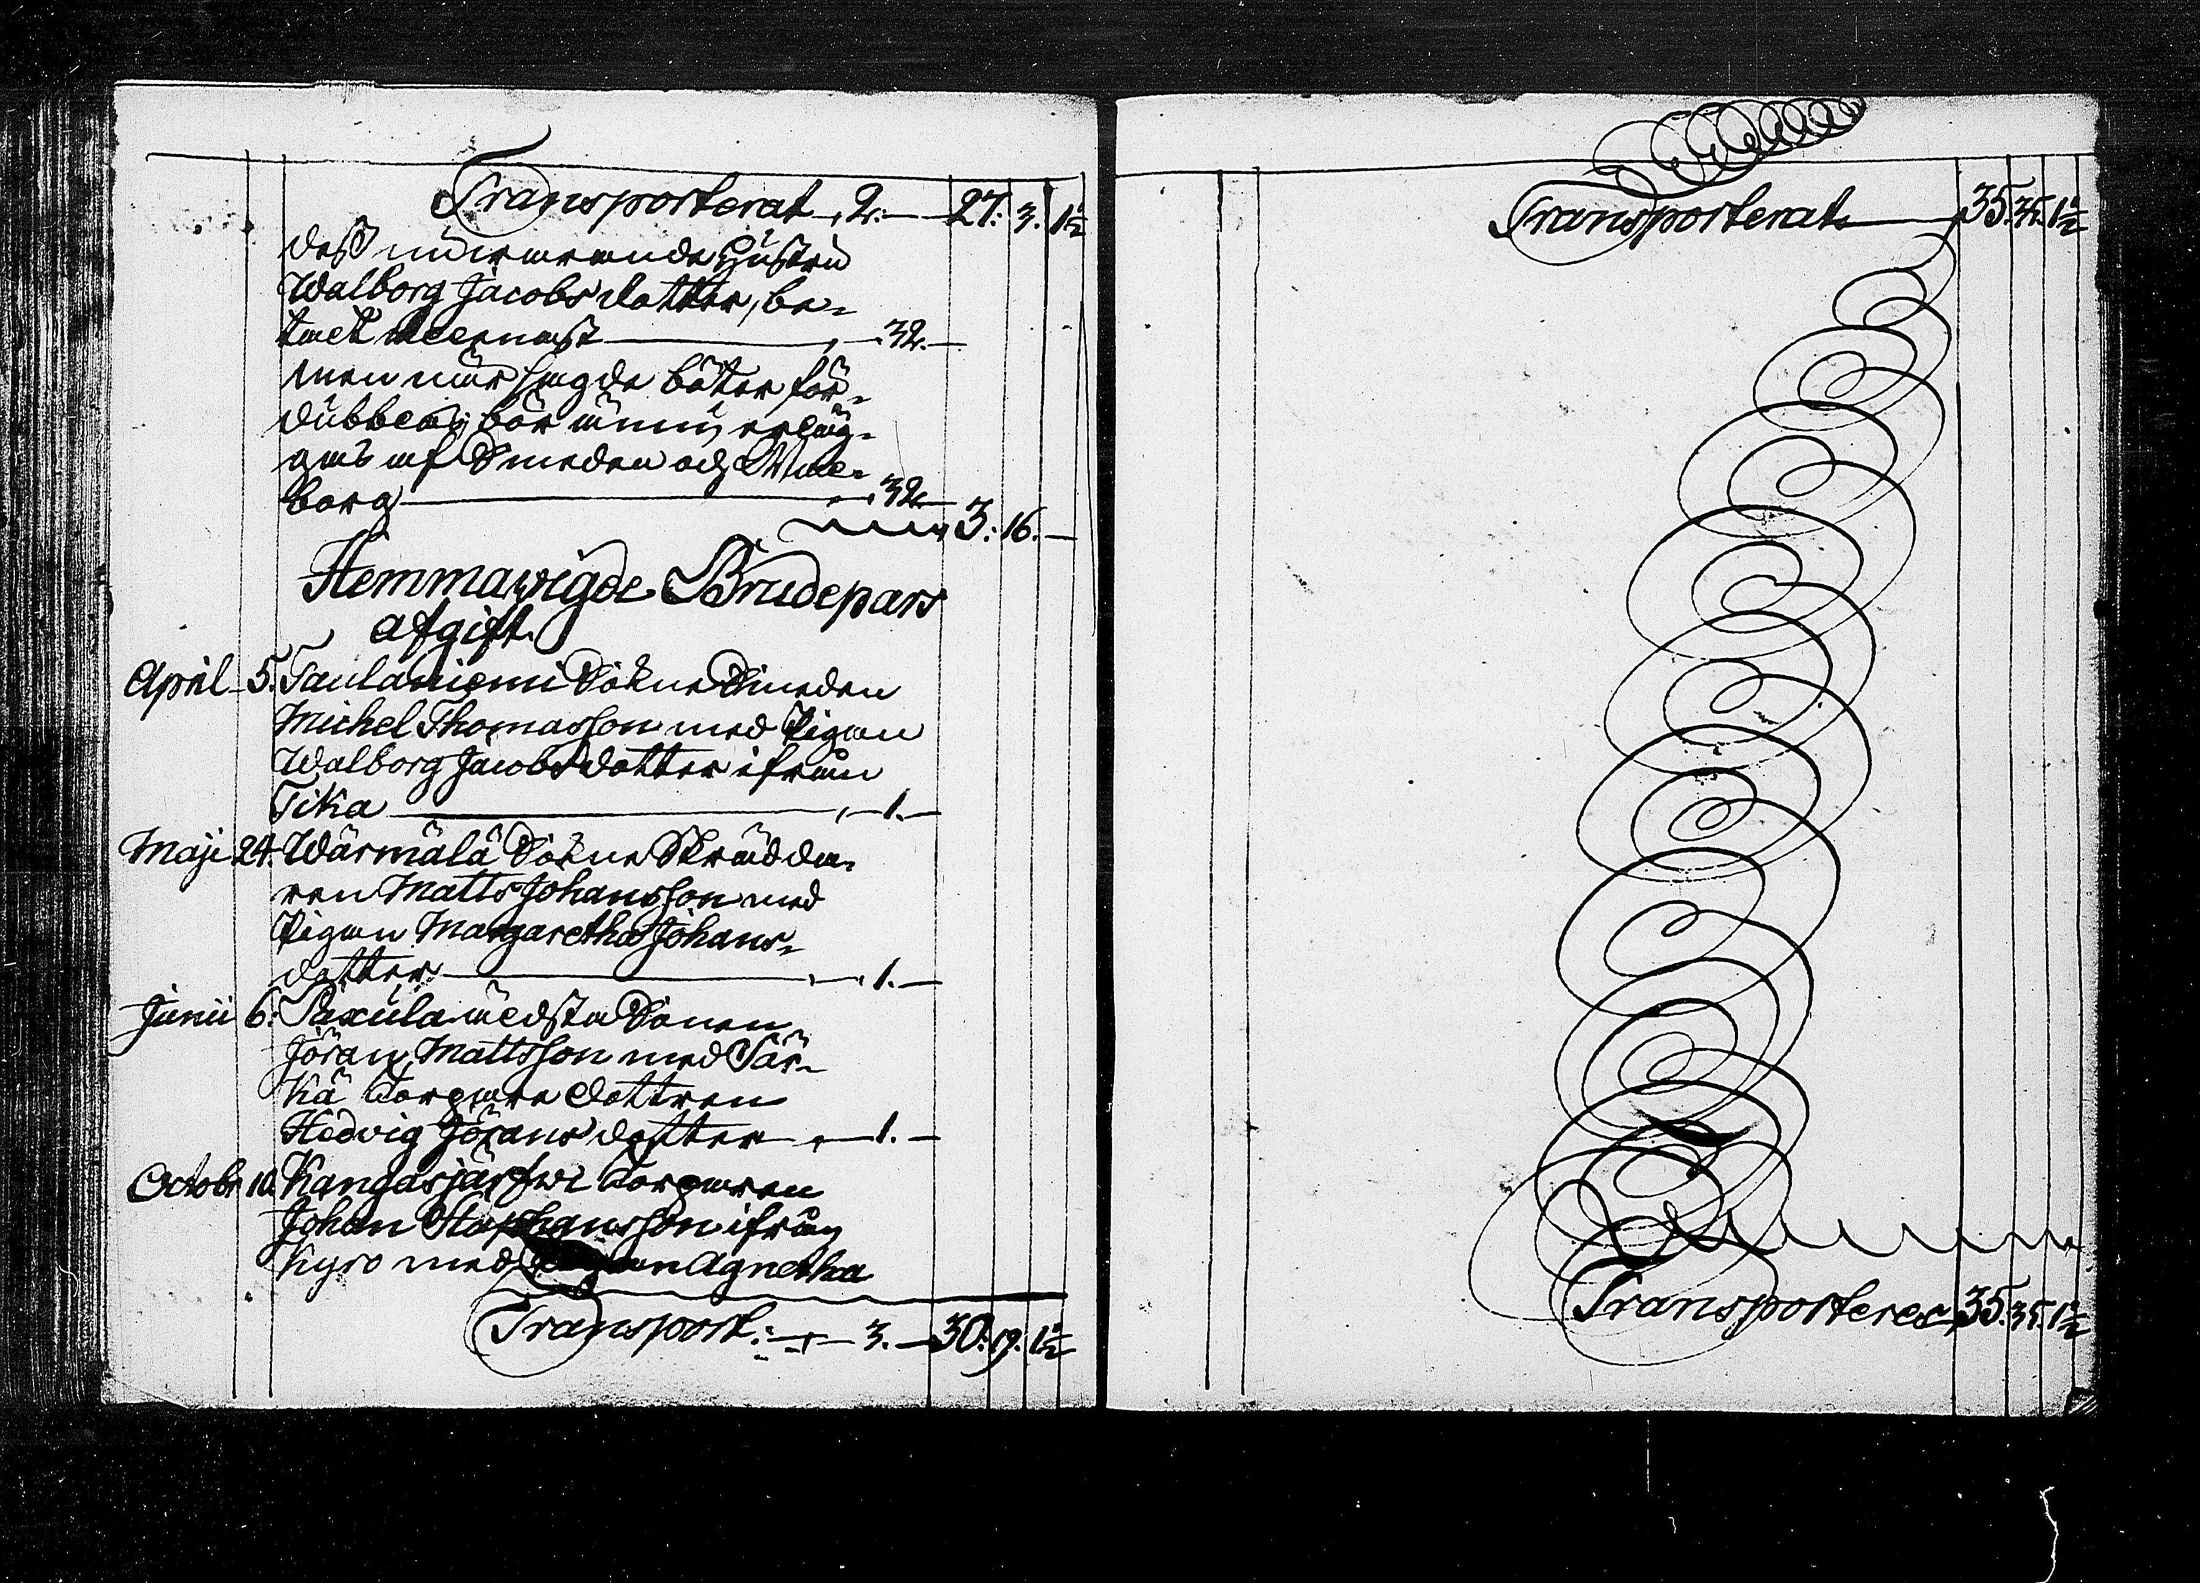 Transporterat 2. 27. 3. 1½
dess nuvarande Hustru
Walborg Jacobs dotter, be-
talt allenast 32.
men när sagde böter för-
dubblas, bör ännu erläg-
gas af Smeden och Wal-
borg 32.
3. 16.
Hemmawigde Brudepars
afgift.
April 5. Taulaniemi Sokne Smeden
Michel Thomasson med Pigan
Walborg Jacobsdotter ifrån
Tika 1.
Maji 24. Wärmälä Sokne Skrädda-
ren Matts Johansson med
Pigan Margaretha Johans-
dotter 1.
Junii 6. Paxula äldsta Sonen
Jöran Mattsson med Sär-
kä Torpare dottren
Hedvig Jörans dotter 1.
Octobr 10. Kangasjärfwi Torparen
Johan Staphansson ifrån
Kyro med Agnetha
Transport: 3. 30. 19. 1½
Transporterat 35. 35. 1½
Transporteres 35. 35. 1½